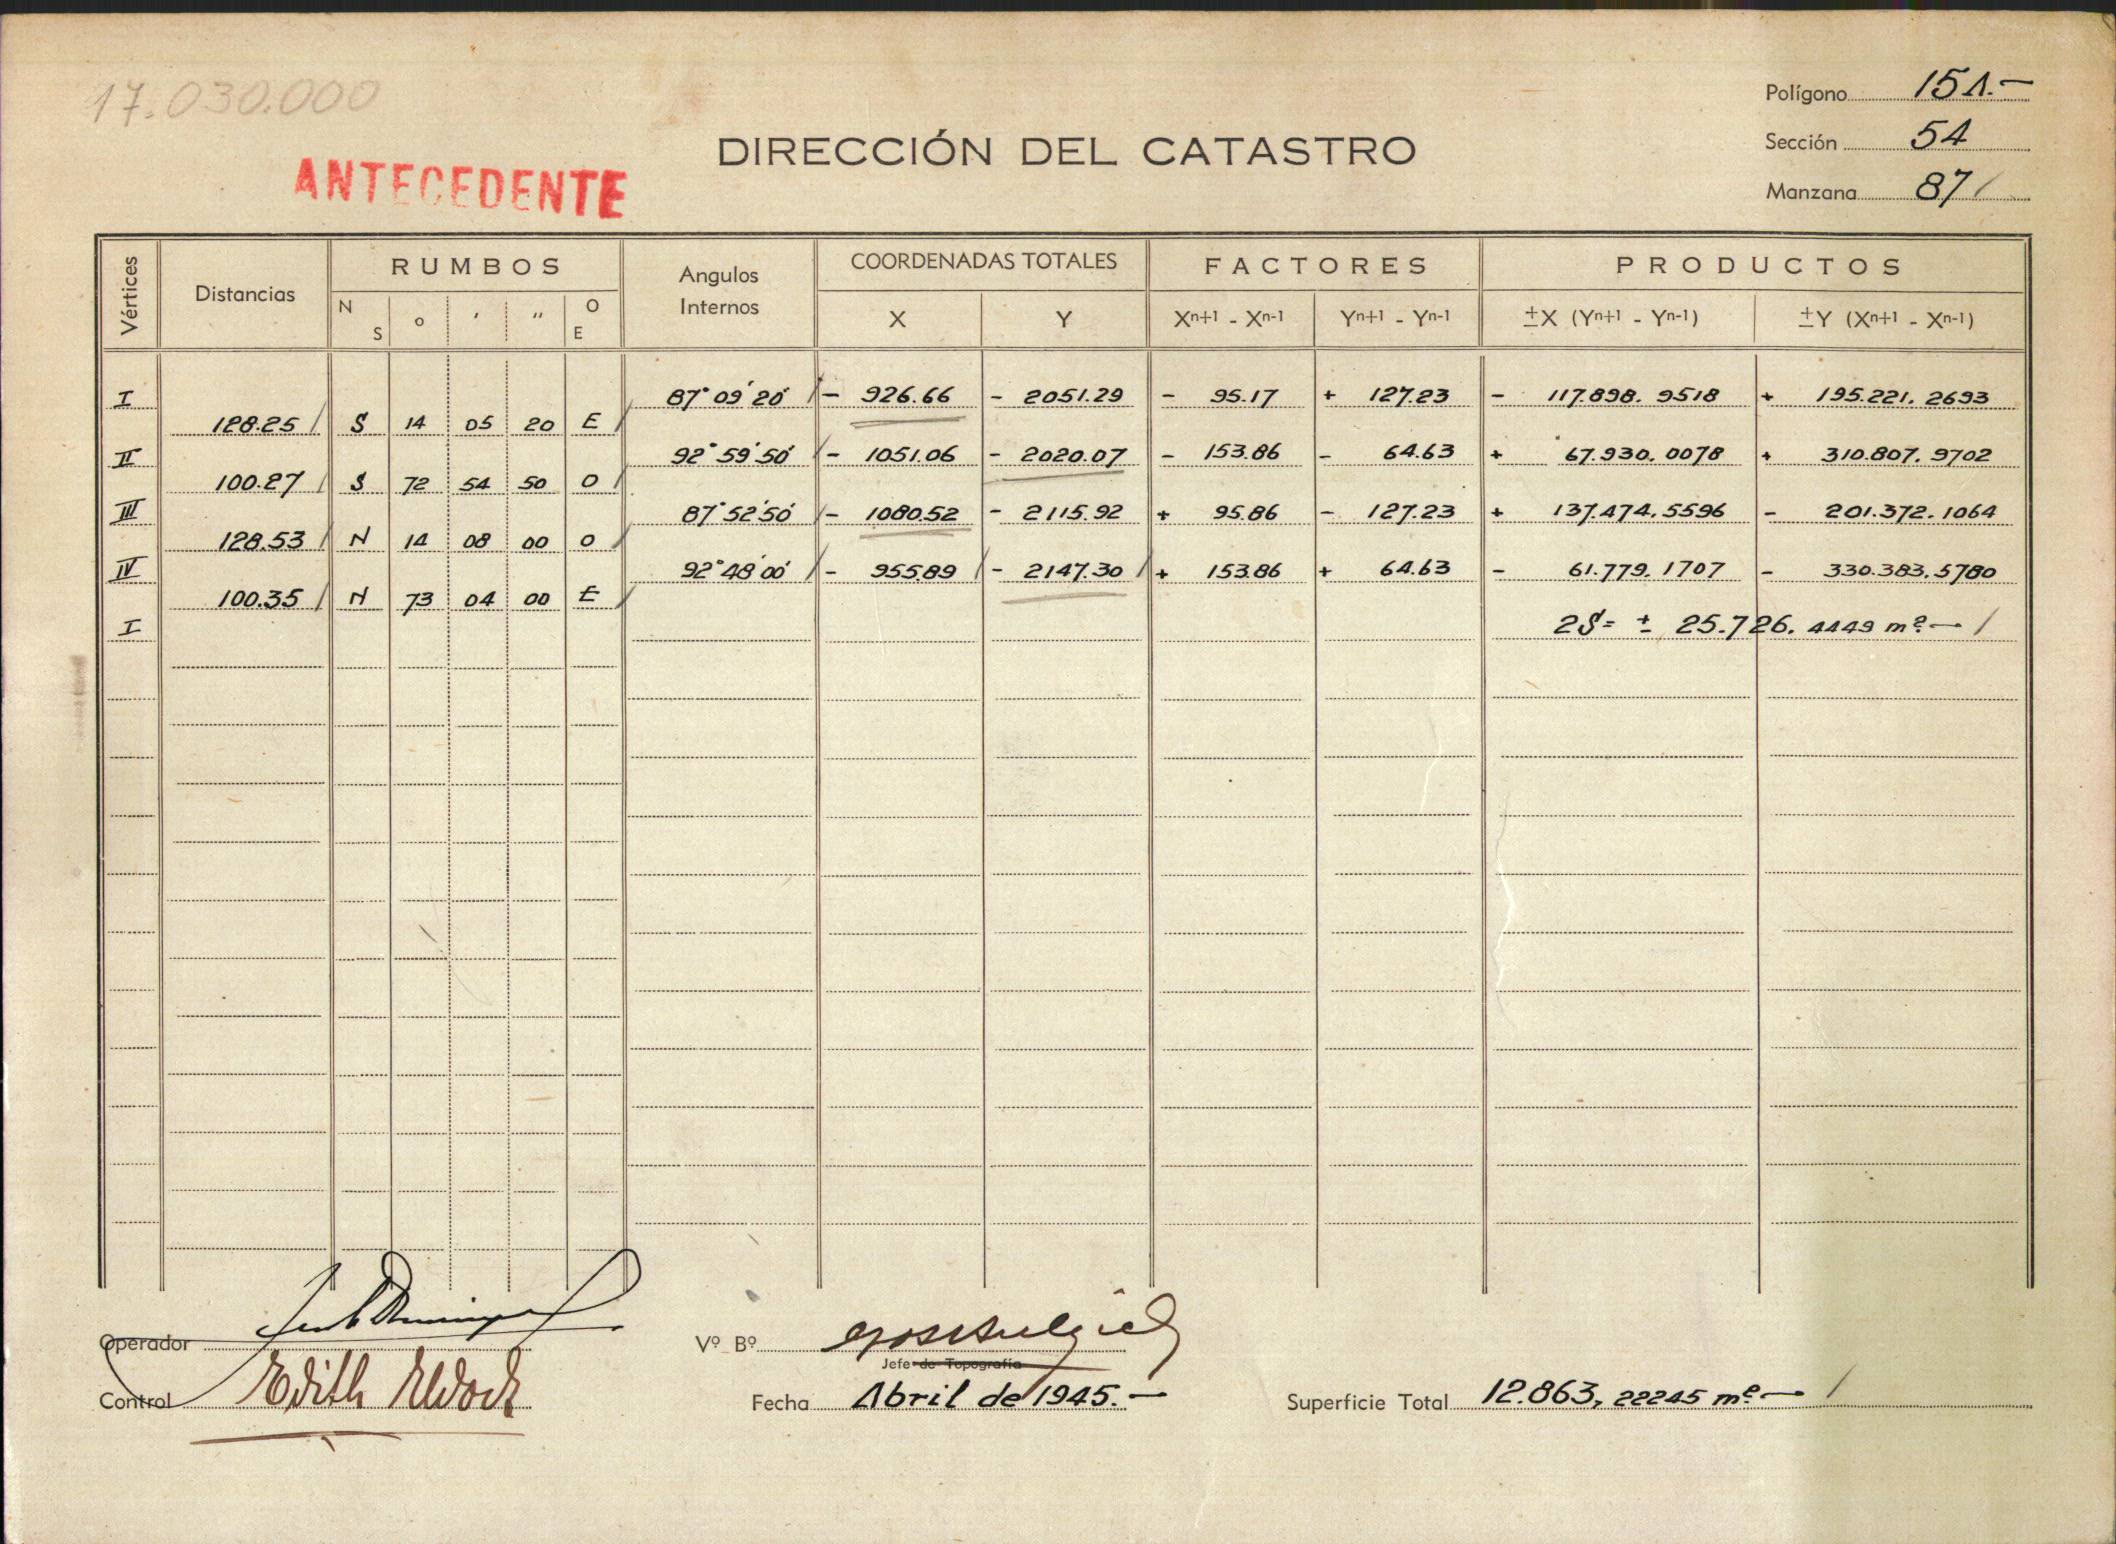 17.030.000
Polígono 15A.-
Sección 54
Manzana 87
DIRECCIÓN DEL CATASTRO
ANTECEDENTE
Vértices Distancias RUMBOS Angulos Internos COORDENADAS TOTALES FACTORES PRODUCTOS
N S o ' '' O E X Y Xn+1 - Xn-1 Yn+1 - Yn-1 ±X (Yn+1 - Yn-1) ±Y (Xn+1 - Xn-1)
I 87° 09' 20' - 926.66 - 2051.29 - 95.17 + 127.23 - 117.898.9518 + 195.221.2693
128.25 S 14 05 20 E
II 92° 59' 50' - 1051.06 - 2020.07 - 153.86 - 64.63 + 67.930.0078 + 310.807.9702
100.27 S 72 54 50 O
III 87° 52' 50' - 1080.52 - 2115.92 + 95.86 - 127.23 + 137.474.5596 - 201.372.1064
128.53 N 14 08 00 O
IV 92° 48' 00' - 955.89 - 2147.30 + 153.86 + 64.63 - 61.779.1707 - 330.383.5780
100.35 N 73 04 00 E
I 2S= ± 25.726.4449 m2.-
Operador
Vº Bº
Jefe de Topografía
Control Edith
Fecha Abril de 1945.-
Superficie Total 12.863,22245 m2.-